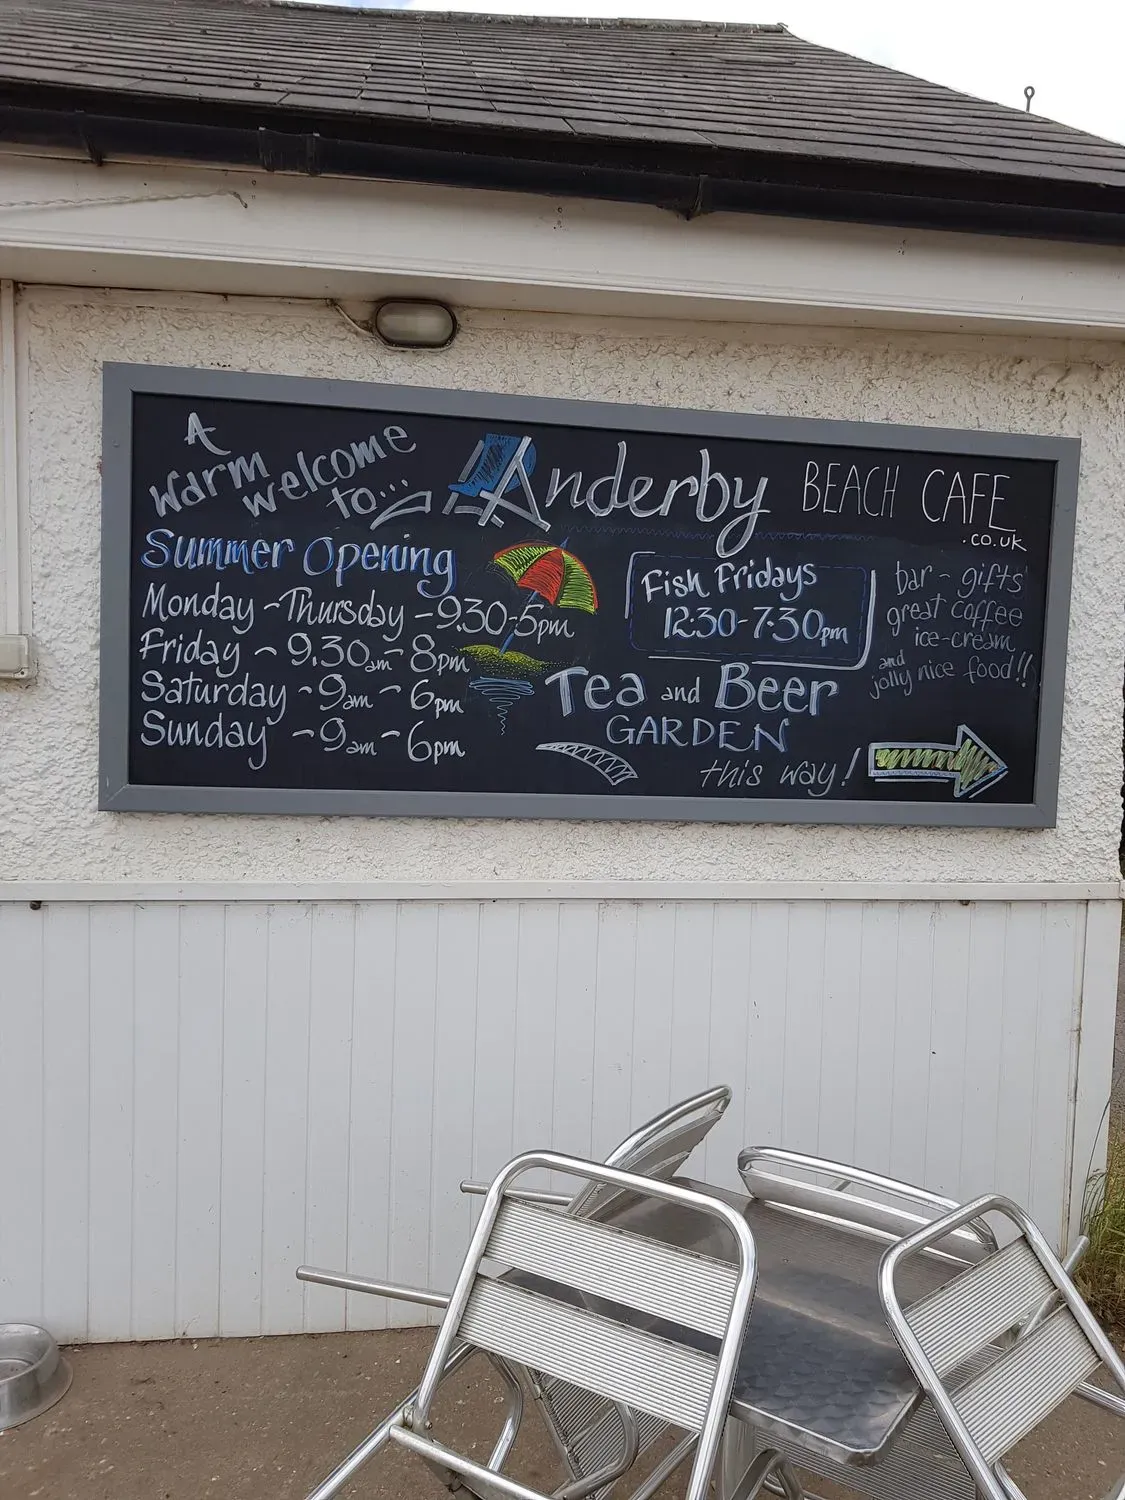 A
warm
welcome
to...
Anderby BEACH CAFE
.co.uk
Summer Opening
Monday - Thursday - 9.30-5pm
Friday - 9.30am - 8pm
Saturday - 9am - 6pm
Sunday - 9am - 6pm
Fish Fridays
12:30-7:30pm
Tea and Beer
GARDEN
this way!
bar - gifts
great coffee
ice-cream
and
jolly nice food!!